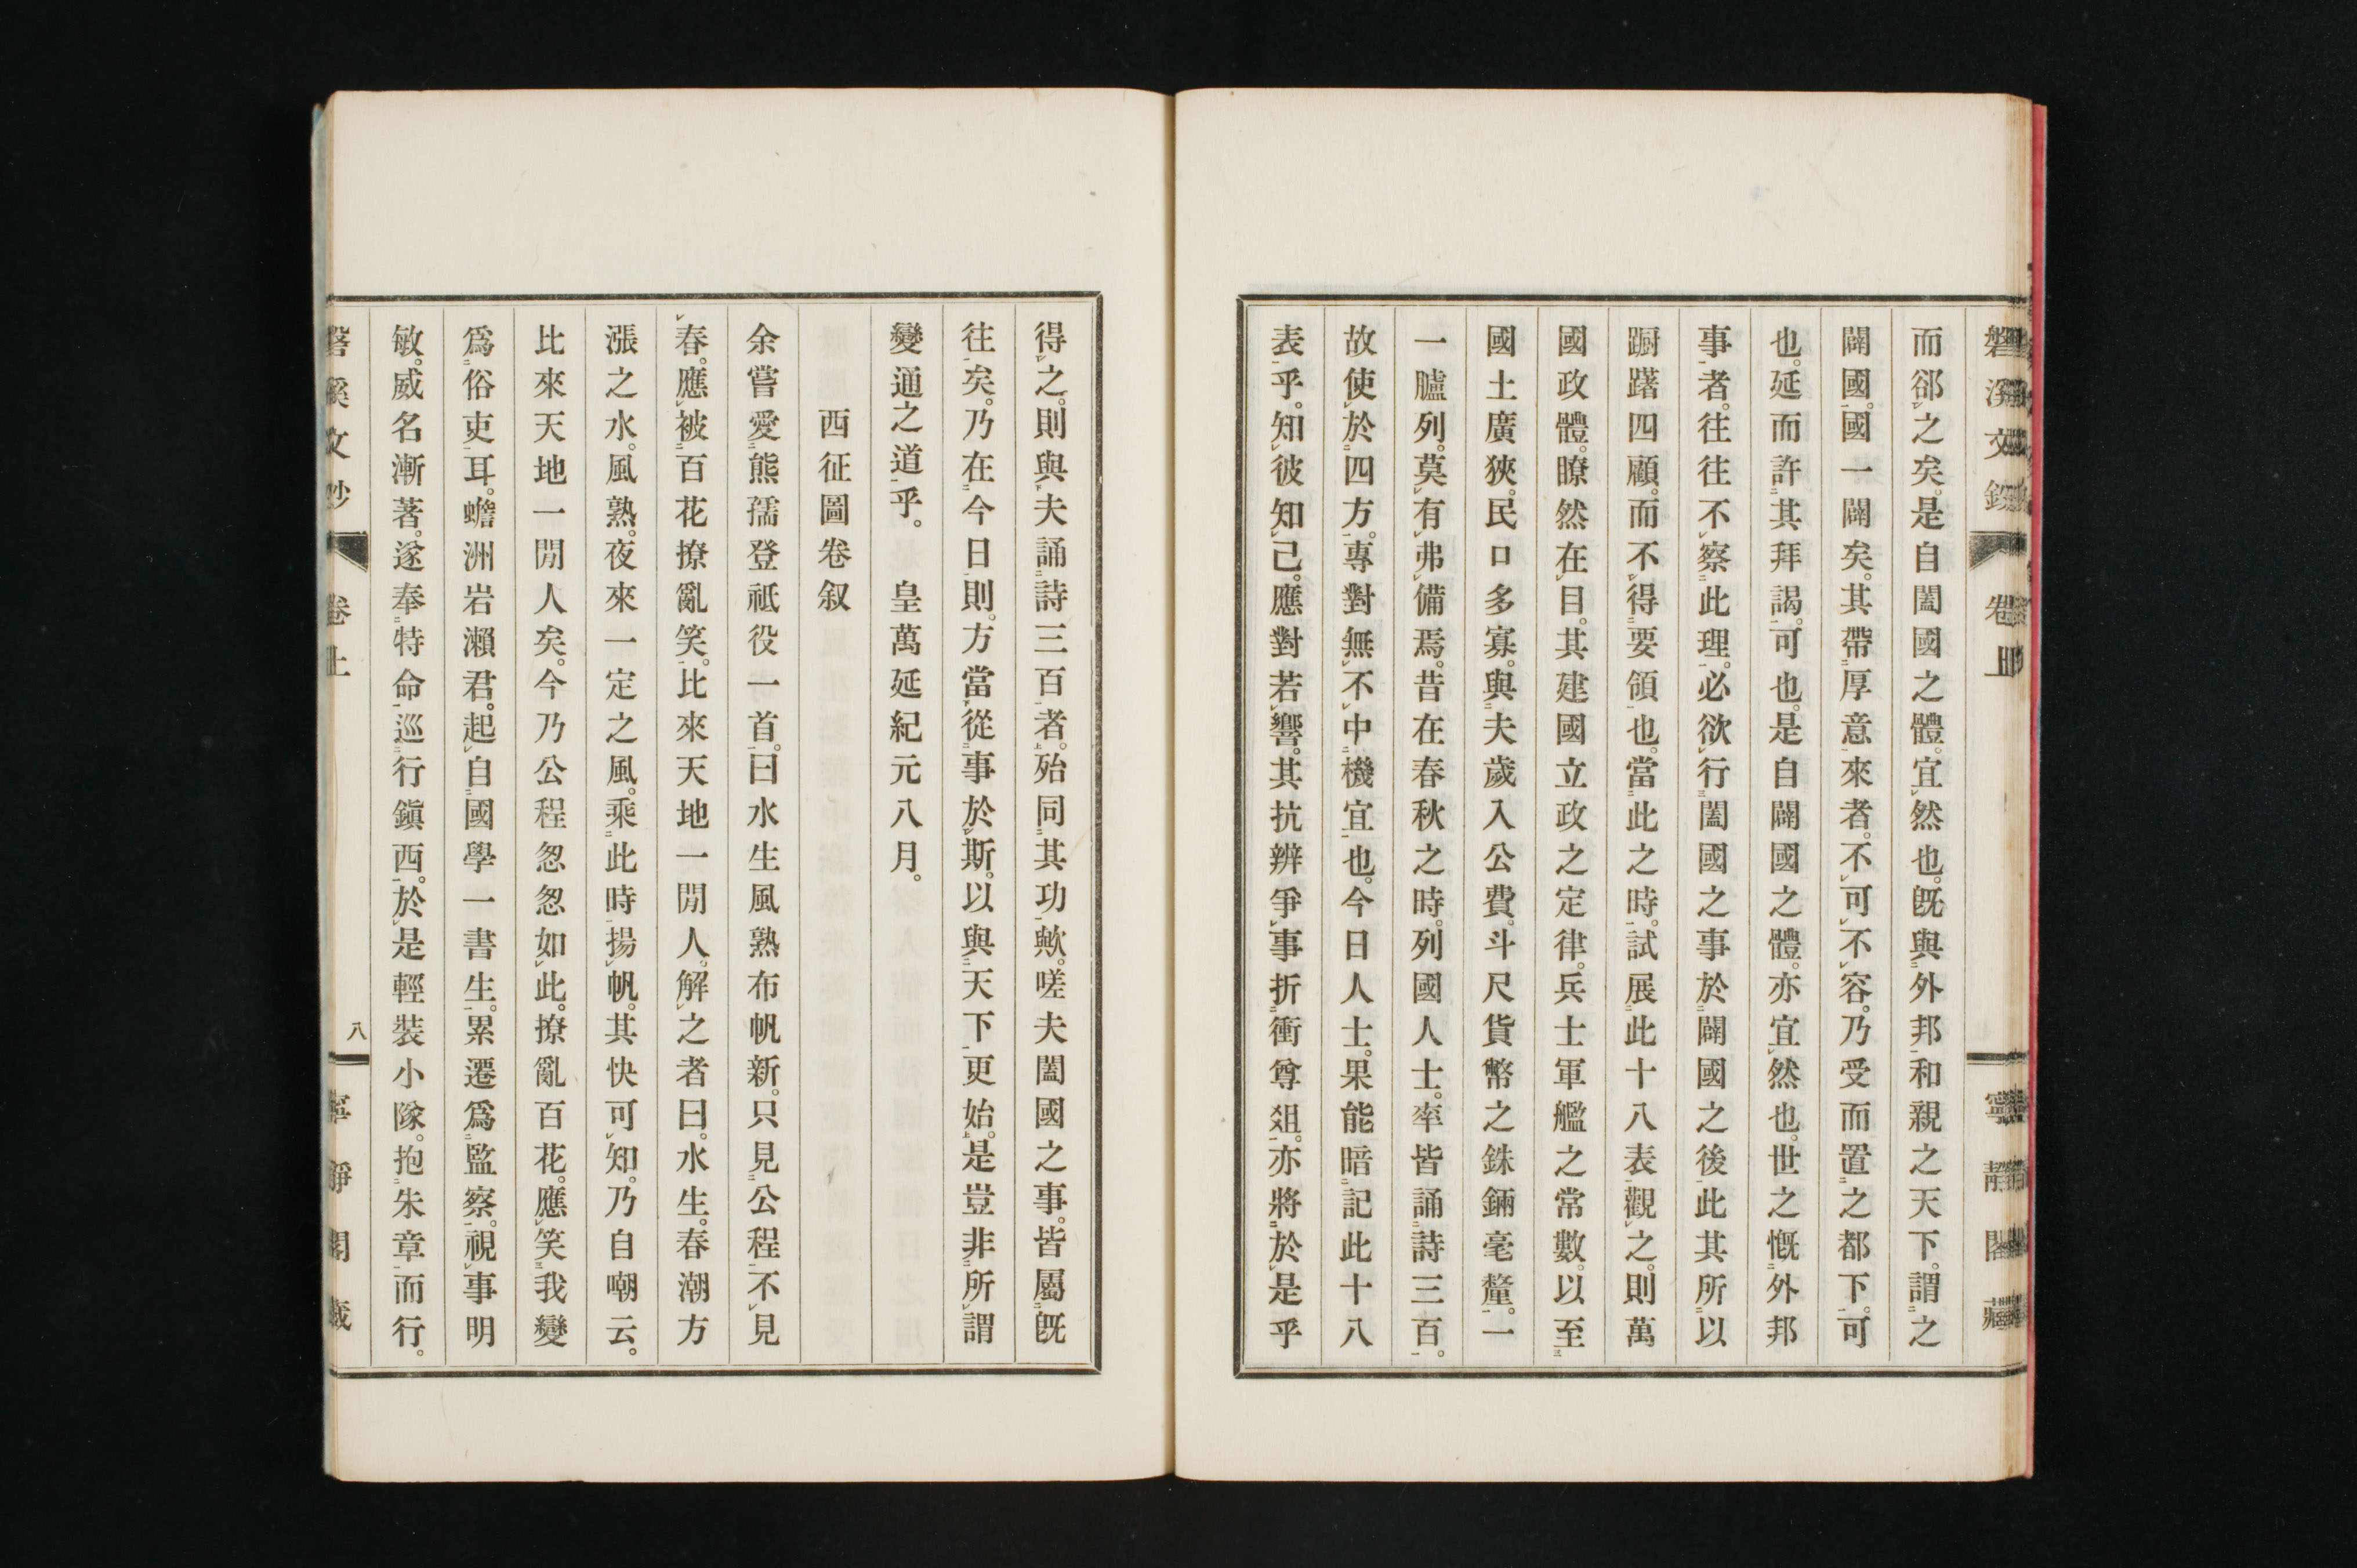 磐溪文鈔 卷上 寧靜閣藏
而郤之矣。是自闔國之體。宜然也。既與外邦和親之天下。謂之
闢國。國一闢矣。其帶厚意來者。不可不容。乃受而置之都下。可
也。延而許其拜謁。可也。是自闢國之體。亦宜然也。世之慨外邦
事者。往往不察此理。必欲行闔國之事於闢國之後。此其所以
蹰躇四顧。而不得要領也。當此之時。試展此十八表觀之。則萬
國政體。瞭然在目。其建國立政之定律。兵士軍艦之常數。以至
國土廣狹。民口多寡。與夫歲入公費。斗尺貨幣之銖錙毫釐。一
一臚列。莫有弗備焉。昔在春秋之時。列國人士。率皆誦詩三百。
故使於四方。專對無不中機宜也。今日人士。果能暗記此十八
表乎。知彼知己。應對若響。其抗辨爭事折衝尊俎。亦將於是乎
得之。則與夫誦詩三百者。殆同其功歟。嗟夫闔國之事。皆屬既
往矣。乃在今日則。方當從事於斯。以與天下更始。是豈非所謂
變通之道乎。 皇萬延紀元八月。
西征圖卷叙
余嘗愛熊孺登祗役一首。曰水生風熟布帆新。只見公程不見
春。應被百花撩亂笑。比來天地一閒人。解之者曰。水生。春潮方
漲之水。風熟。夜來一定之風。乘此時揚帆。其快可知。乃自嘲云。
比來天地一閒人矣。今乃公程怱怱如此。撩亂百花。應笑我變
爲俗吏耳。蟾洲岩瀨君。起自國學一書生。累遷爲監察。視事明
敏。威名漸著。遂奉特命巡行鎭西。於是輕裝小隊。抱朱章而行。
磐溪文鈔 卷上 八 寧靜閣藏